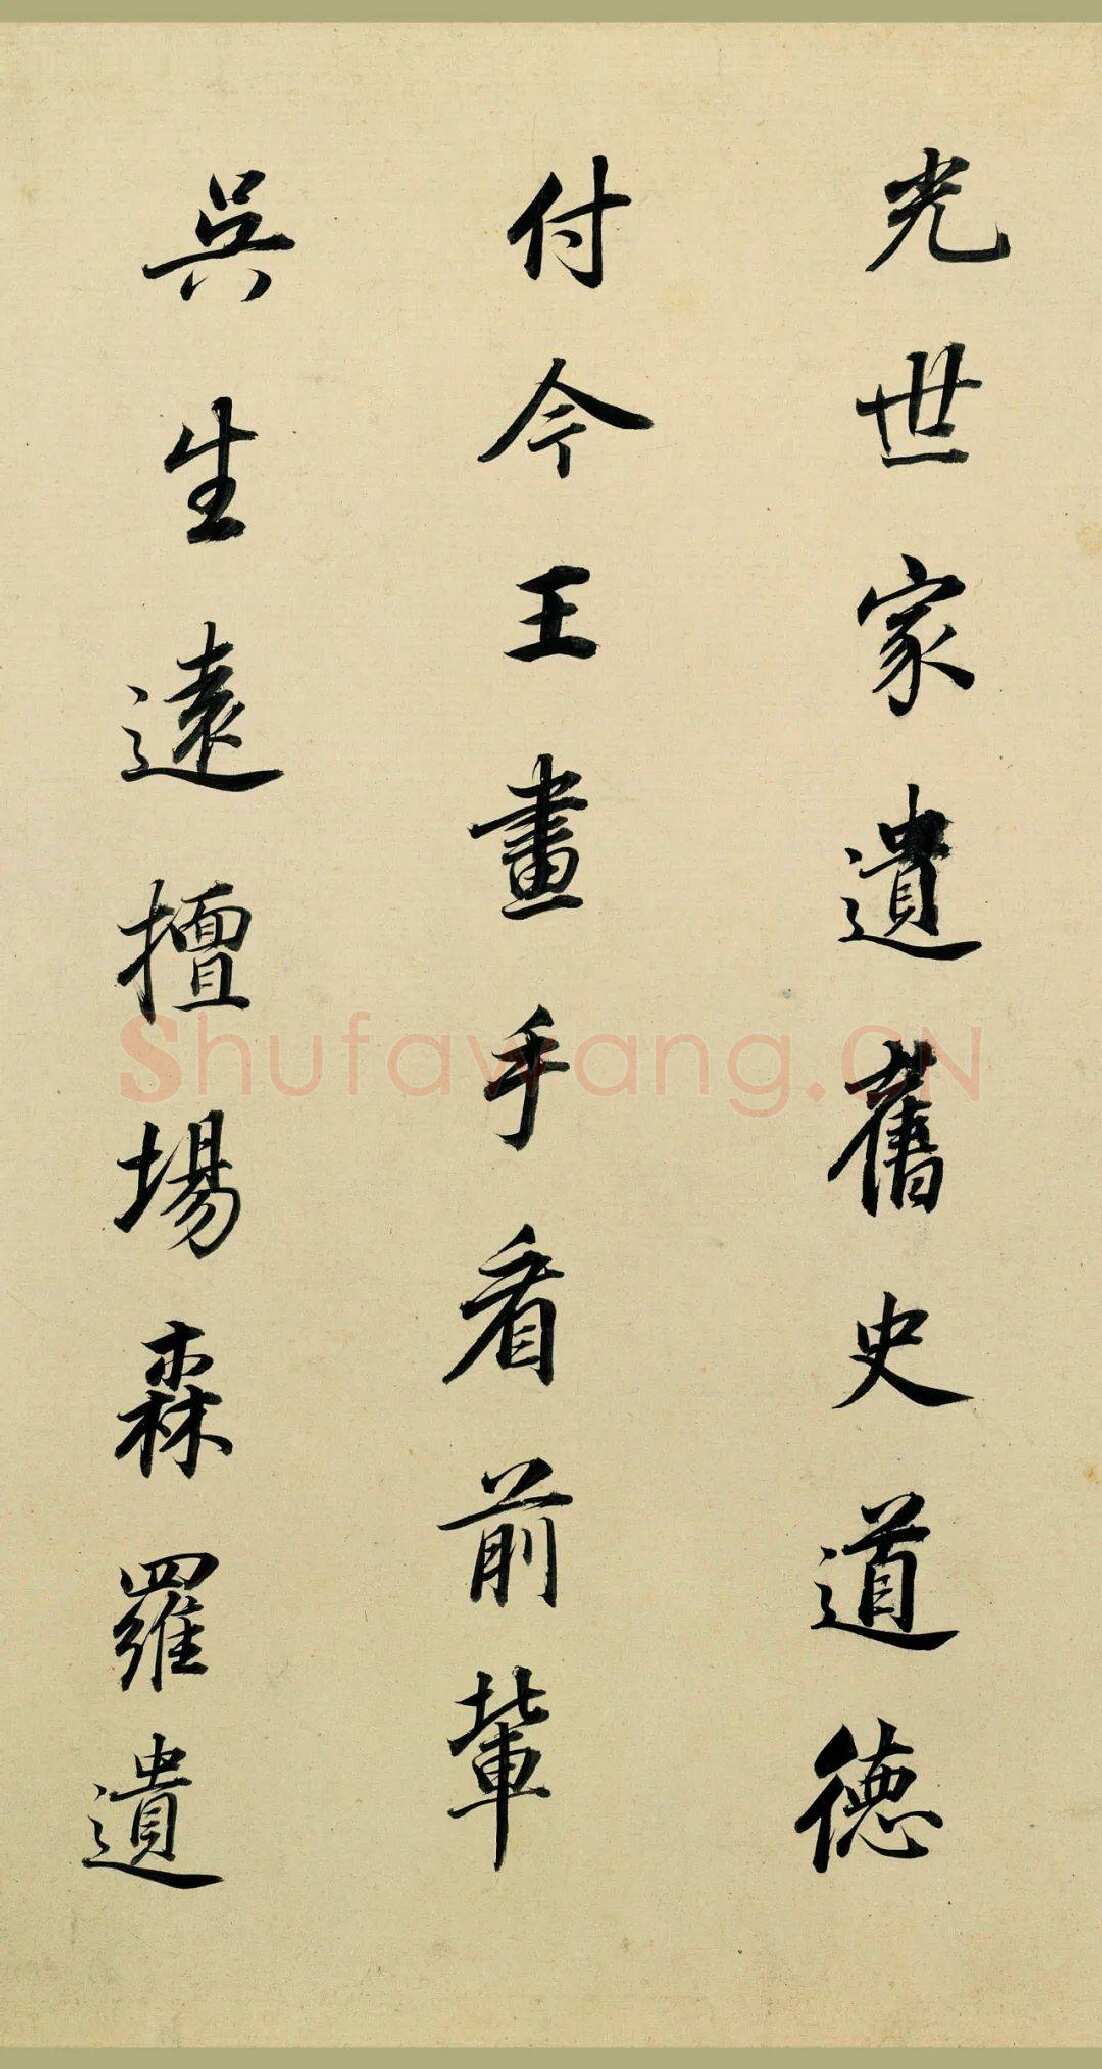 光世家遺舊史道德
付今王畫手看前輩
吳生遠擅場森羅遺
Shufawang.CN